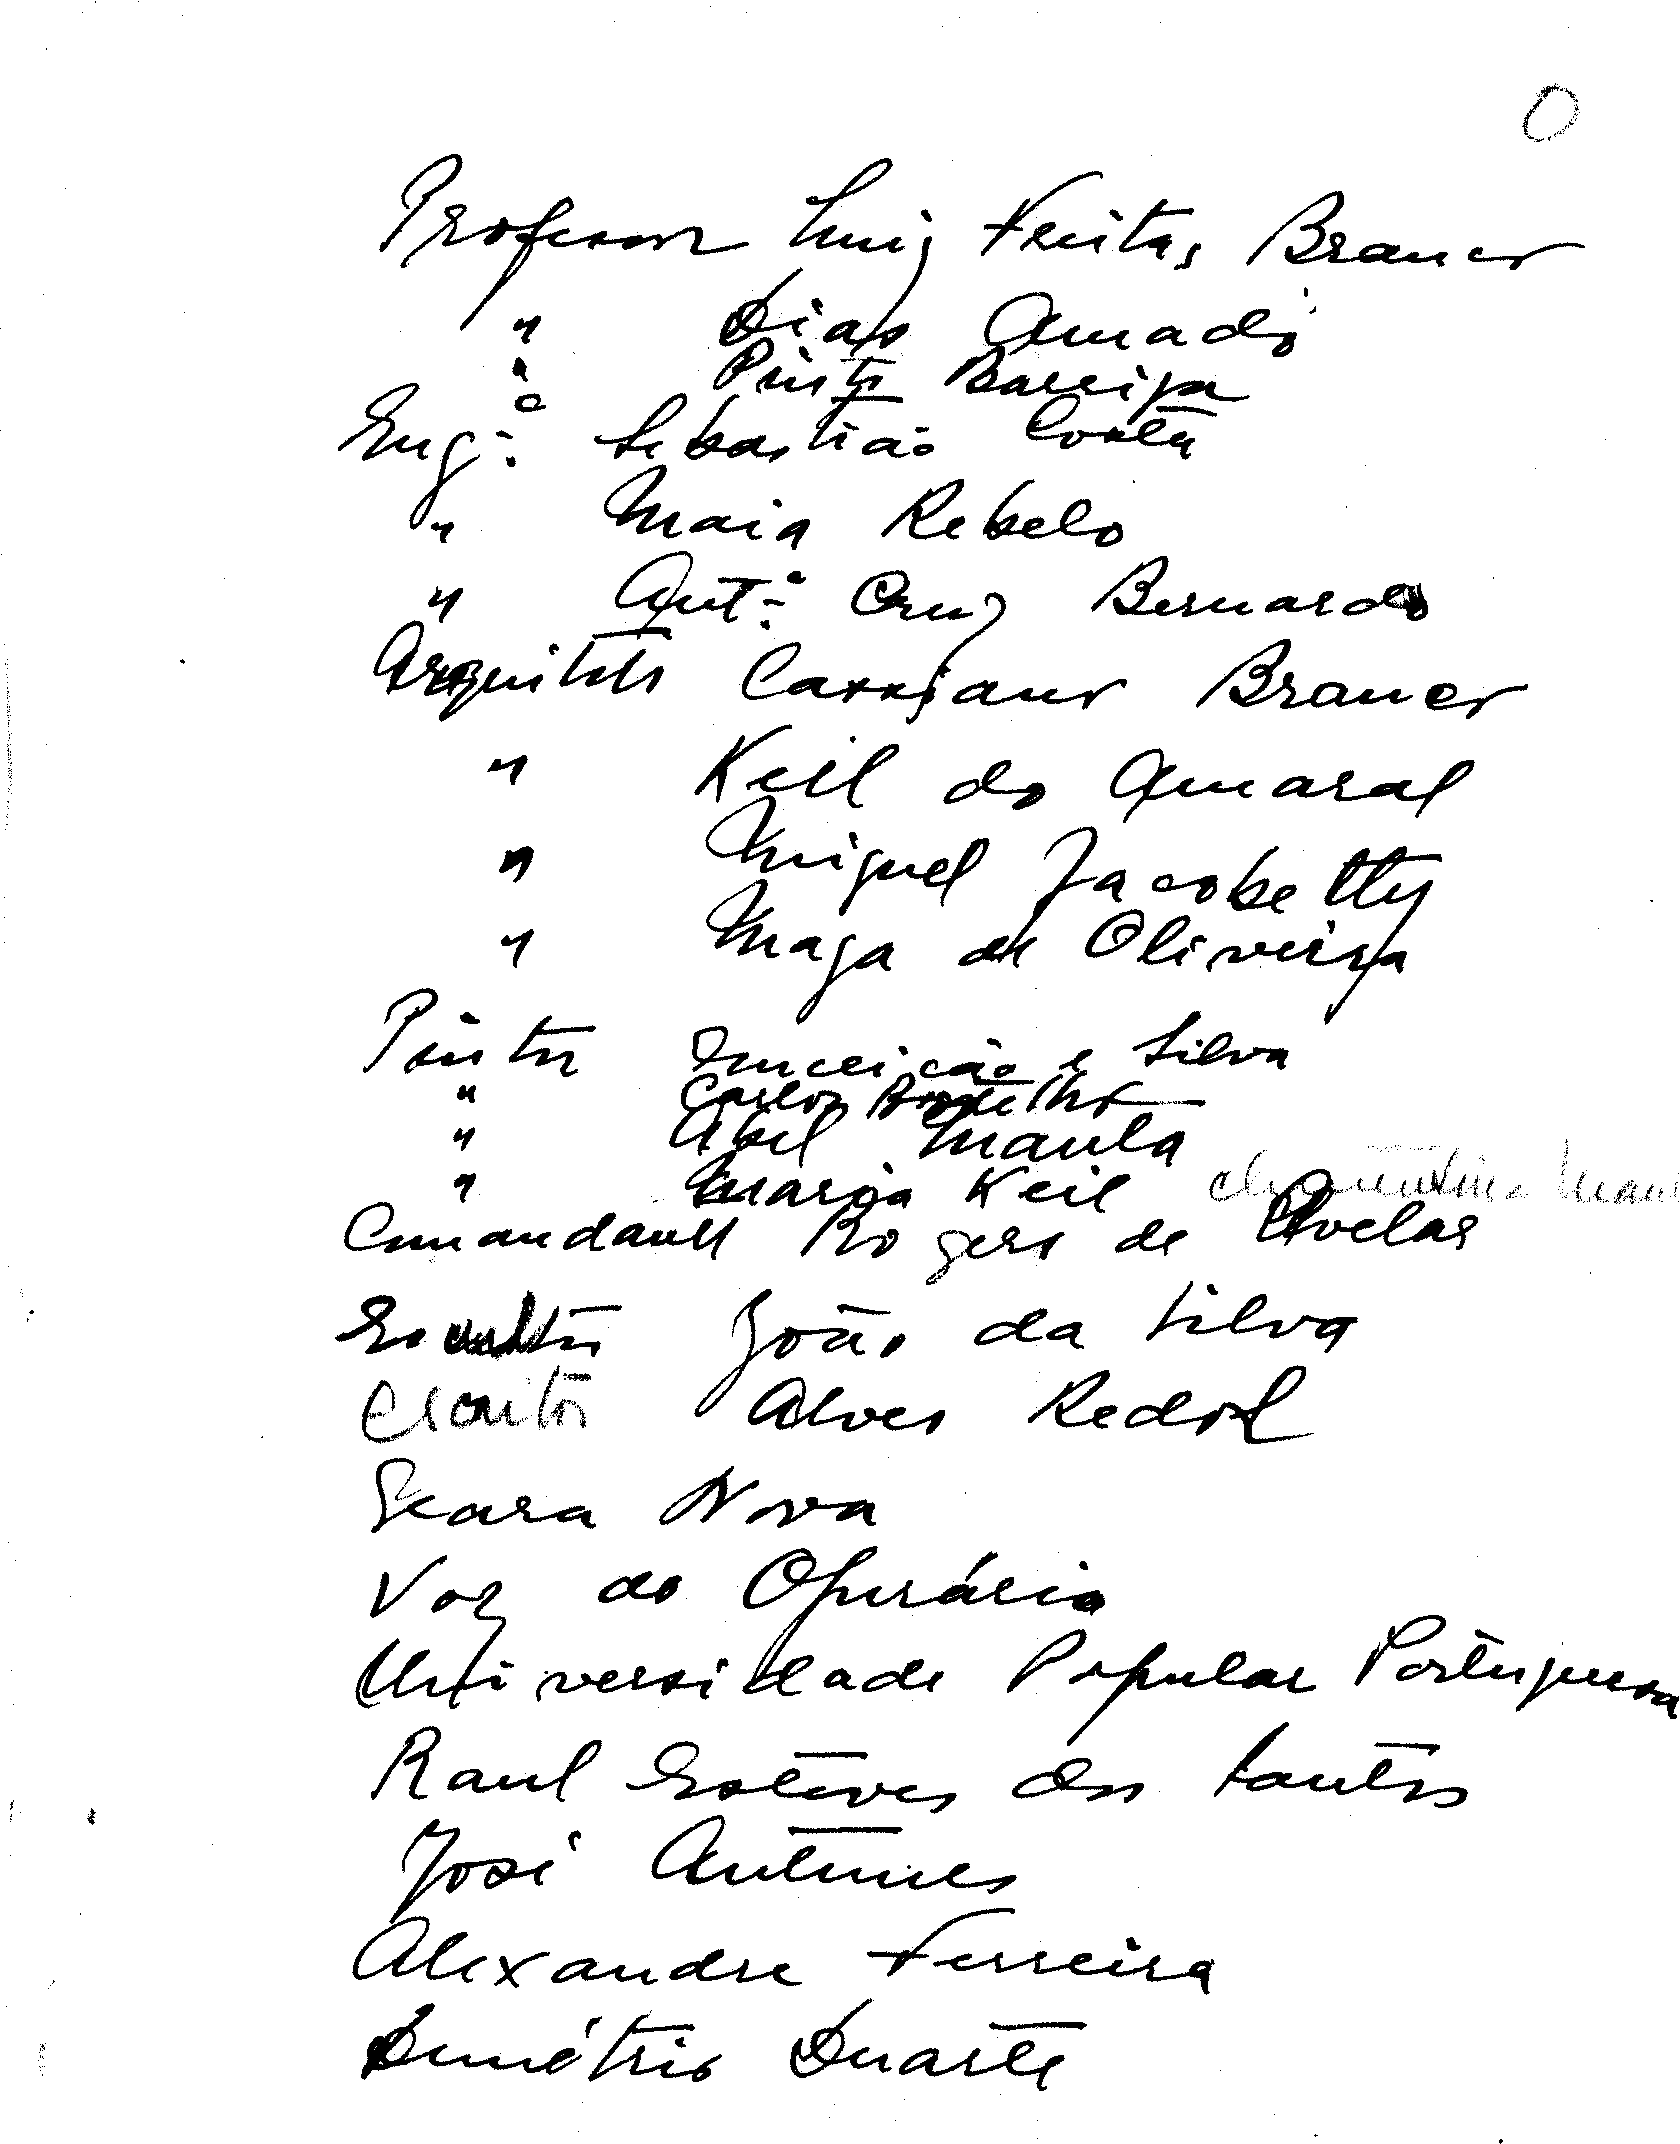 O
Professor Luiz Freitas Branco
" Dias Amado
" Pinto Barriga
Eng.º Sebastião Costa
" Maia Rebelo
" Ant.º Cruz Bernardo
Arquiteto Cassiano Branco
" Keil do Amaral
" Miguel Jacobetty
" Maga de Oliveira
Pintor Conceição e Silva
" Carlos Botelho
" Abel Manta
" Maria Keil Clementina Man
Comandante Rogers de Avelar
Escultor João da Silva
Escritor Alves Redol
Seara Nova
Voz do Operário
Universidade Popular Portuguesa
Raul Esteves dos Santos
José Antunes
Alexandre Ferreira
Demétrio Duarte